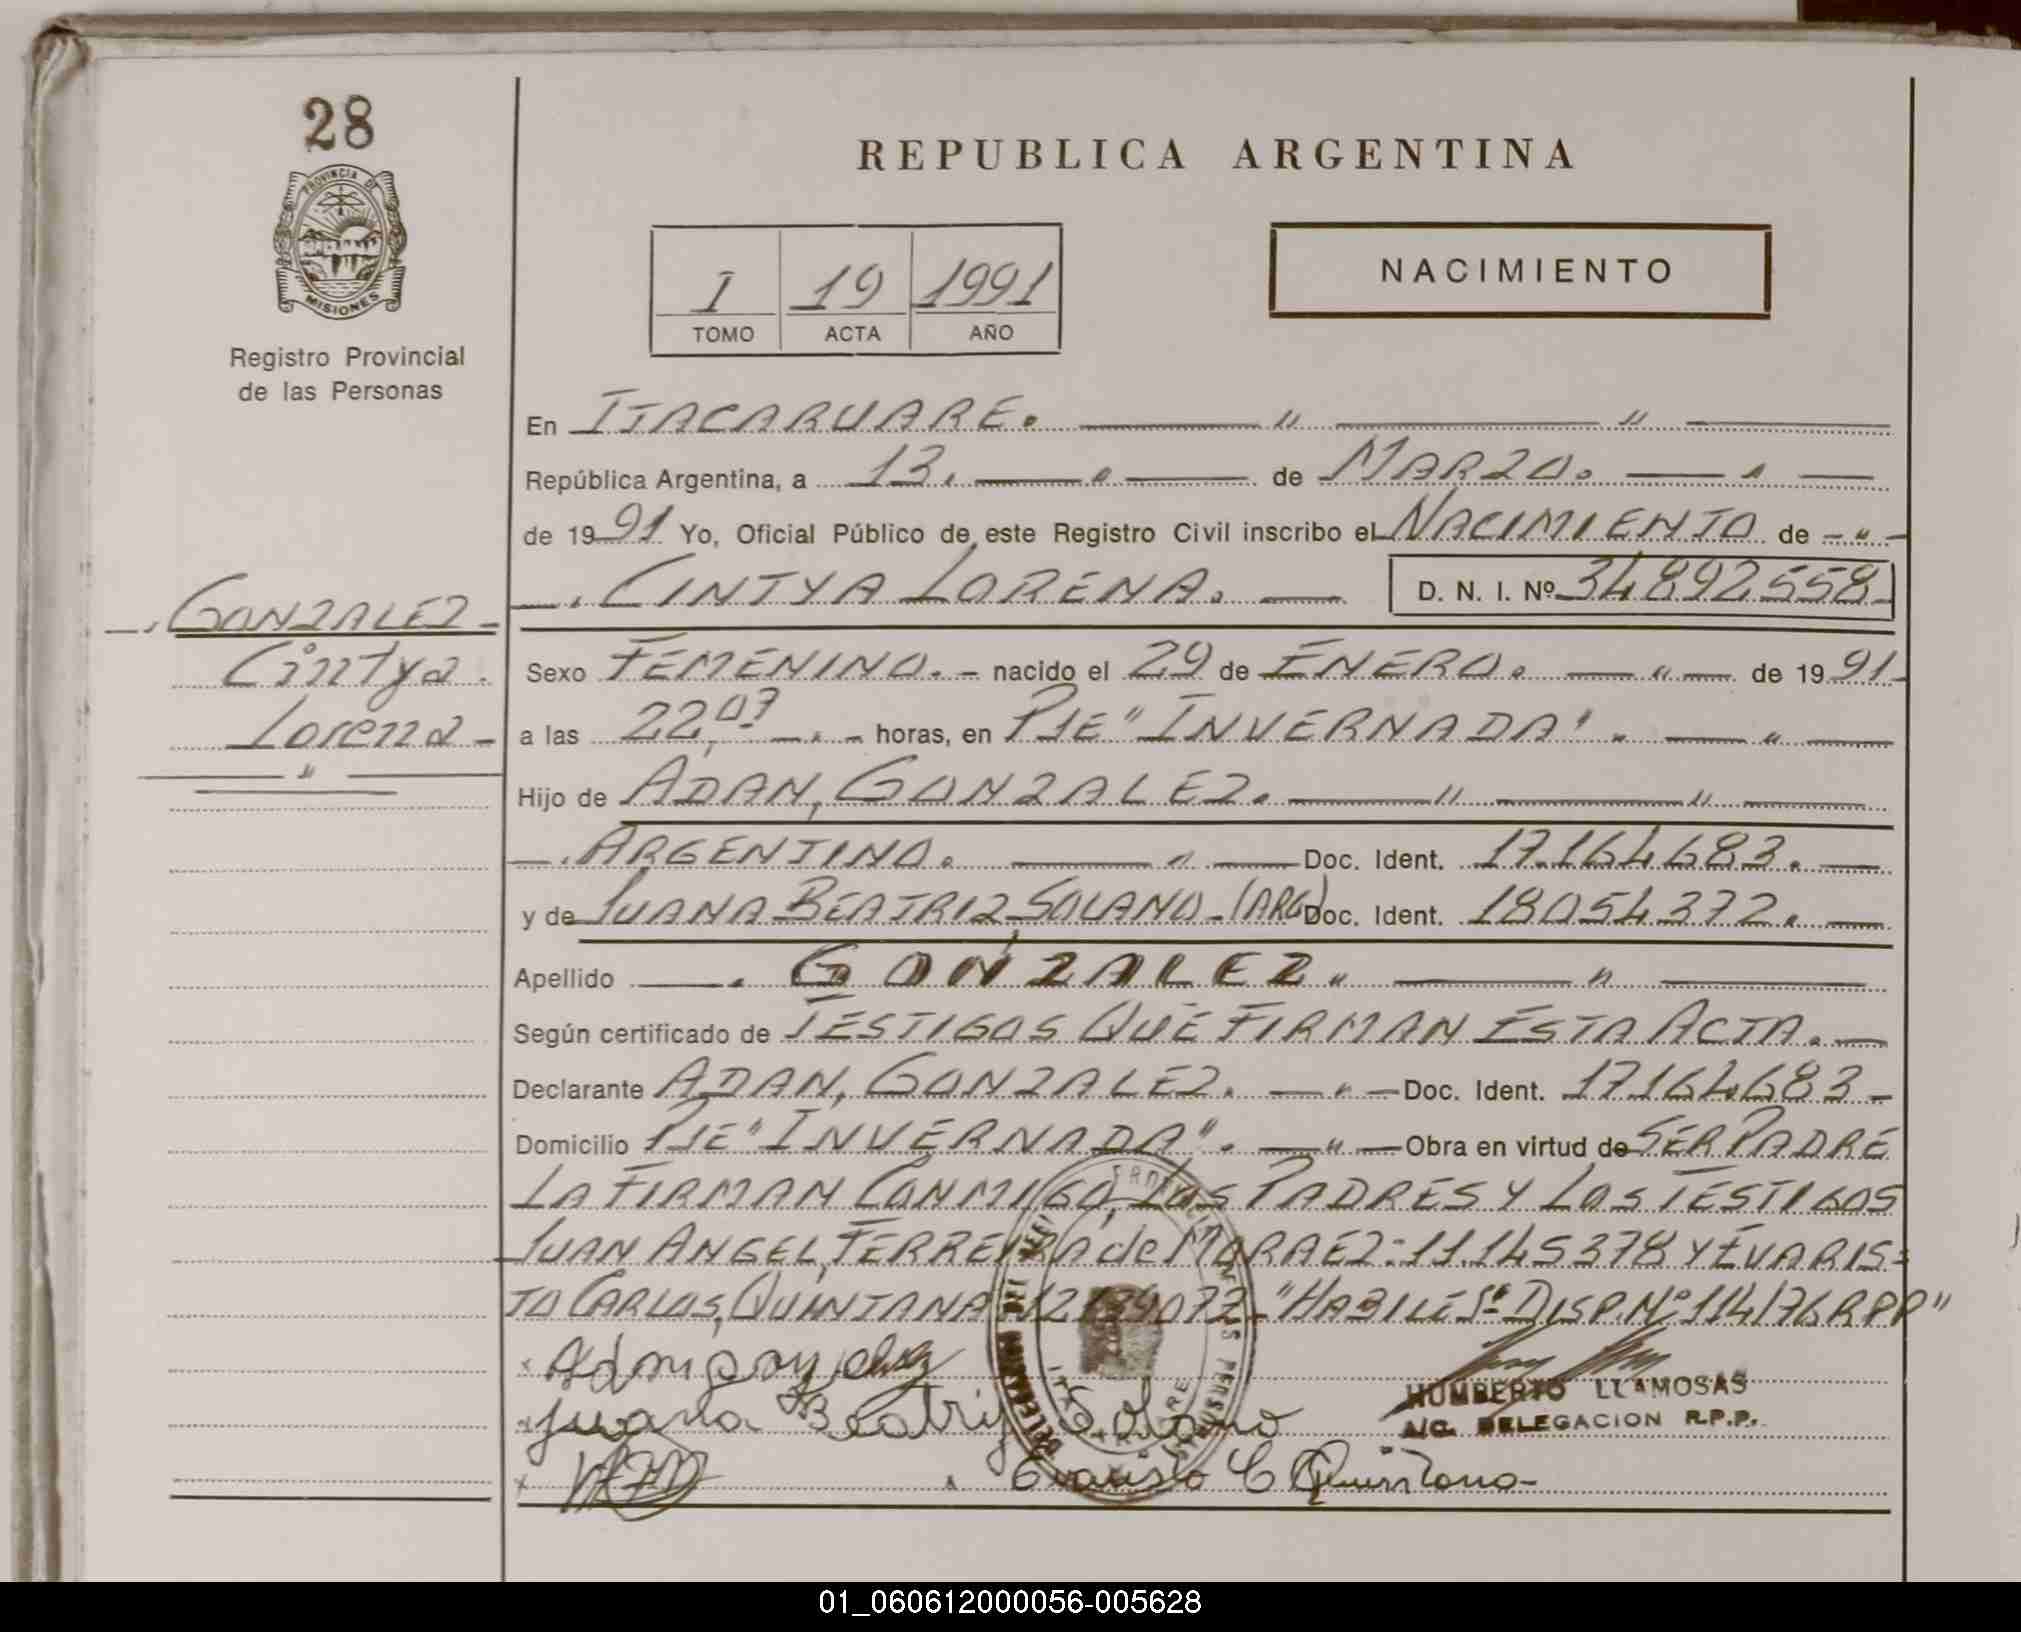 28
PROVINCIA DE
MISIONES
Registro Provincial
de las Personas
REPUBLICA ARGENTINA
I 19 1991
TOMO ACTA AÑO
NACIMIENTO
En ITACARUARE. — " — " —
República Argentina, a 13. — " — de MARZO. — " —
de 1991 Yo, Oficial Público de este Registro Civil inscribo el NACIMIENTO de — " —
—. CINTYA LORENA. — D. N. I. Nº 34892558
—. GONZALEZ —
Cintya.
Lorena —
— " —
Sexo FEMENINO. — nacido el 29 de ENERO. — " — de 1991
a las 22,07 —. — horas, en PJE "INVERNADA". — " —
Hijo de ADAN, GONZALEZ. — " — " —
—. ARGENTINO. — " — Doc. Ident. 17.164.683. —
y de JUANA BEATRIZ SOLANO — (ARG) Doc. Ident. 18054372. —
Apellido —. GONZALEZ " — " —
Según certificado de TESTIGOS QUE FIRMAN ESTA ACTA. —
Declarante ADAN, GONZALEZ. — " — Doc. Ident. 17.164.683 —
Domicilio PJE "INVERNADA". — " — Obra en virtud de SER PADRE
LA FIRMAN CONMIGO, LOS PADRES Y LOS TESTIGOS
JUAN ANGEL, FERREIRA de MORAEZ: 11.145378 Y EVARIS=
TO CARLOS, QUINTANA — "HABILES" DISP. Nº 114/76 RPP"
Juana Beatriz Solano
HUMBERTO LLAMOSAS
A/C. DELEGACION R.P.P.
Evaristo C Quintana —
01_060612000056-005628